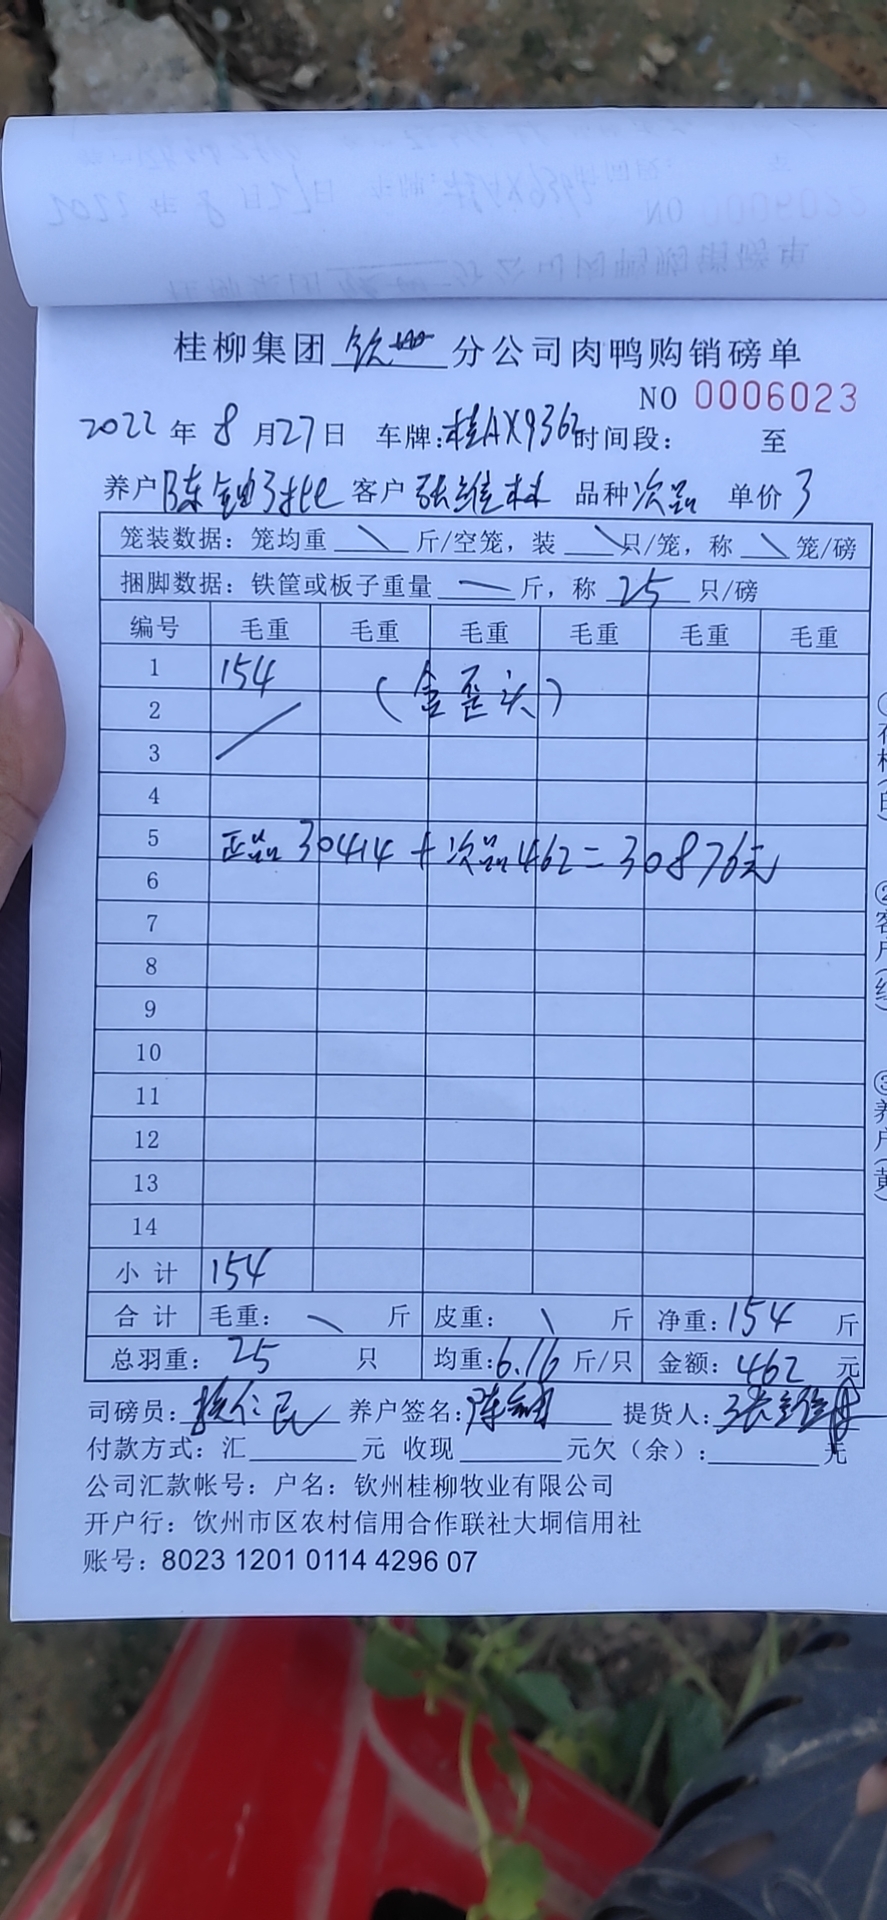 桂柳集团 钦州 分公司肉鸭购销磅单
NO 0006023
2022 年 8 月 27 日 车牌: 桂AX9362 时间段: 至
养户 陈 客户 张维林 品种 次品 单价 3
笼装数据: 笼均重 \ 斤/空笼, 装 \ 只/笼, 称 \ 笼/磅
捆脚数据: 铁筐或板子重量 — 斤, 称 25 只/磅
编号 毛重 毛重 毛重 毛重 毛重 毛重
1 154
(含歪头)
2
3
4
5
正品 30414 + 次品 462 = 30876元
6
7
8
9
10
11
12
13
14
小 计 154
合 计 毛重: \ 斤 皮重: \ 斤 净重: 154 斤
总羽重: 25 只 均重: 6.16 斤/只 金额: 462 元
司磅员: 养户签名: 陈 提货人: 张维林
付款方式: 汇 元 收现 元欠(余): 元
公司汇款帐号: 户名: 钦州桂柳牧业有限公司
开户行: 钦州市区农村信用合作联社大垌信用社
账号: 8023 1201 0114 4296 07
②客户(红)
③养户(黄)